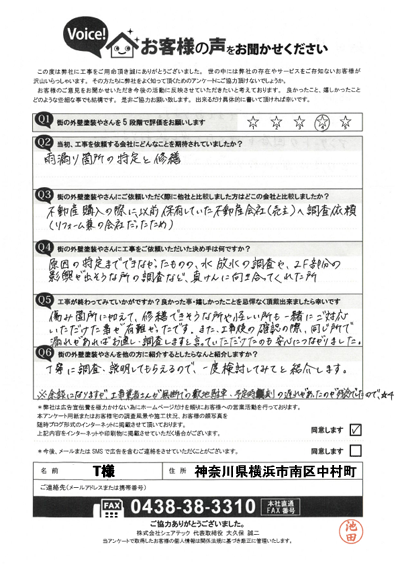 Voice!
お客様の声をお聞かせください
この度は弊社に工事をご用命頂き誠にありがとうございました。世の中には弊社の存在やサービスをご存知ないお客様が
沢山いらっしゃいます。その方たちに弊社をよく知って頂くためのアンケートにご協力頂けないでしょうか。
お客様のご意見をお聞かせいただき今後の活動に反映させていただきたいと考えております。良かったこと、嬉しかったこと
どのような些細な事でも結構です。是非ご協力お願い致します。出来るだけ具体的に書いて頂ければ幸いです。
Q1 街の外壁塗装やさんを5段階で評価をお願いします
Q2 当初、工事を依頼する会社にどんなことを期待されていましたか?
雨漏り箇所の特定と修繕
Q3 街の外壁塗装やさんにご依頼いただく際に他社と比較しました方はどこの会社と比較しましたか?
不動産購入の際に、以前保有していた不動産会社(売主)へ調査依頼
(リフォーム兼の会社だったため)
Q4 街の外壁塗装やさんに工事をご依頼いただいた決め手は何ですか?
原因の特定まではできなかったものの、水放水の調査や、2F部分の
影響が出そうな所の調査など、真けんに向き合ってくれた所
Q5 工事が終わってみていかがですか?良かった事・嬉しかったことを忌憚なく頂戴出来ましたら幸いです
傷み箇所に加えて、修繕できそうな所や怪しい所も一緒にご対応
いただけた事が有難かったです。また、工事後の確認の際、同じ所で
漏れがあればお直し、調査しますと言っていただけたのも安心につながりました。
Q6 街の外壁塗装やさんを他の方に紹介するとしたらなんと紹介しますか?
丁寧に調査、説明してもらえるので、一度検討してみてと紹介します。
*弊社は広告宣伝費を極力かけない為にホームページだけを頼りにお客様への営業活動を行っております。
本アンケート用紙またはお客様宅の調査風景や施工状況、お客様の顔写真を
随時ブログ形式でのインターネットに掲載させて頂いております。
上記内容をインターネットや印刷物に掲載させていただく場合がございます。
同意します
*今後、メールまたは SMS で広告を含むご連絡をさせていただくことがございます。
同意します
名前 T様 住所 神奈川県横浜市南区中村町
ご連絡先(メールアドレスまたは携帯番号)
FAX 0438-38-3310 本社直通 FAX番号
ご協力ありがとうございました。
株式会社シェアテック 代表取締役 大久保 誠二
当アンケートで取得したお客様の個人情報は関係法規に基づき厳正に管理いたします。
池田